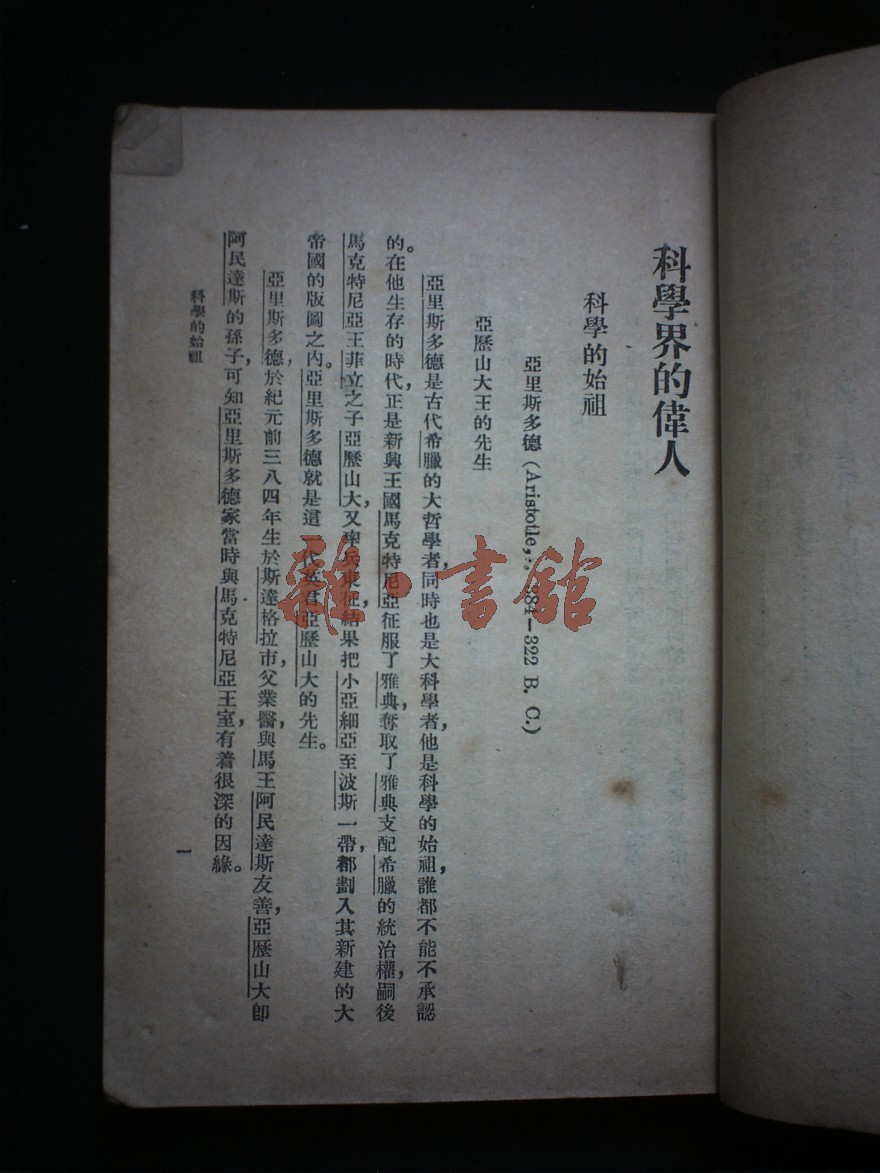 科學界的偉人
科學的始祖
亞里斯多德(Aristotle, 384—322 B. C.)
亞歷山大王的先生
亞里斯多德是古代希臘的大哲學者，同時也是大科學者，他是科學的始祖，誰都不能不承認
的。在他生存的時代，正是新興王國馬克特尼亞征服了雅典，奪取了雅典支配希臘的統治權，嗣後
馬克特尼亞王菲立之子亞歷山大，又率兵東征，結果把小亞細亞至波斯一帶，都劃入其新建的大
帝國的版圖之內。亞里斯多德就是這一代英君亞歷山大的先生。
亞里斯多德，於紀元前三八四年生於斯達格拉市，父業醫，與馬王阿民達斯友善，亞歷山大卽
阿民達斯的孫子，可知亞里斯多德家當時與馬克特尼亞王室，有着很深的因緣。
科學的始祖
一
雜·書館